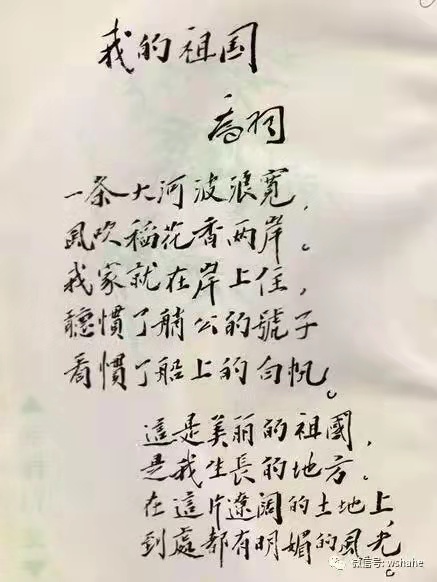 我的祖国
乔羽
一条大河波浪寬，
風吹稻花香两岸。
我家就在岸上住，
聽慣了艄公的號子
看慣了船上的白帆。
這是美丽的祖國，
是我生長的地方。
在這片遼阔的土地上，
到處都有明媚的風光。
微信号: wshahe